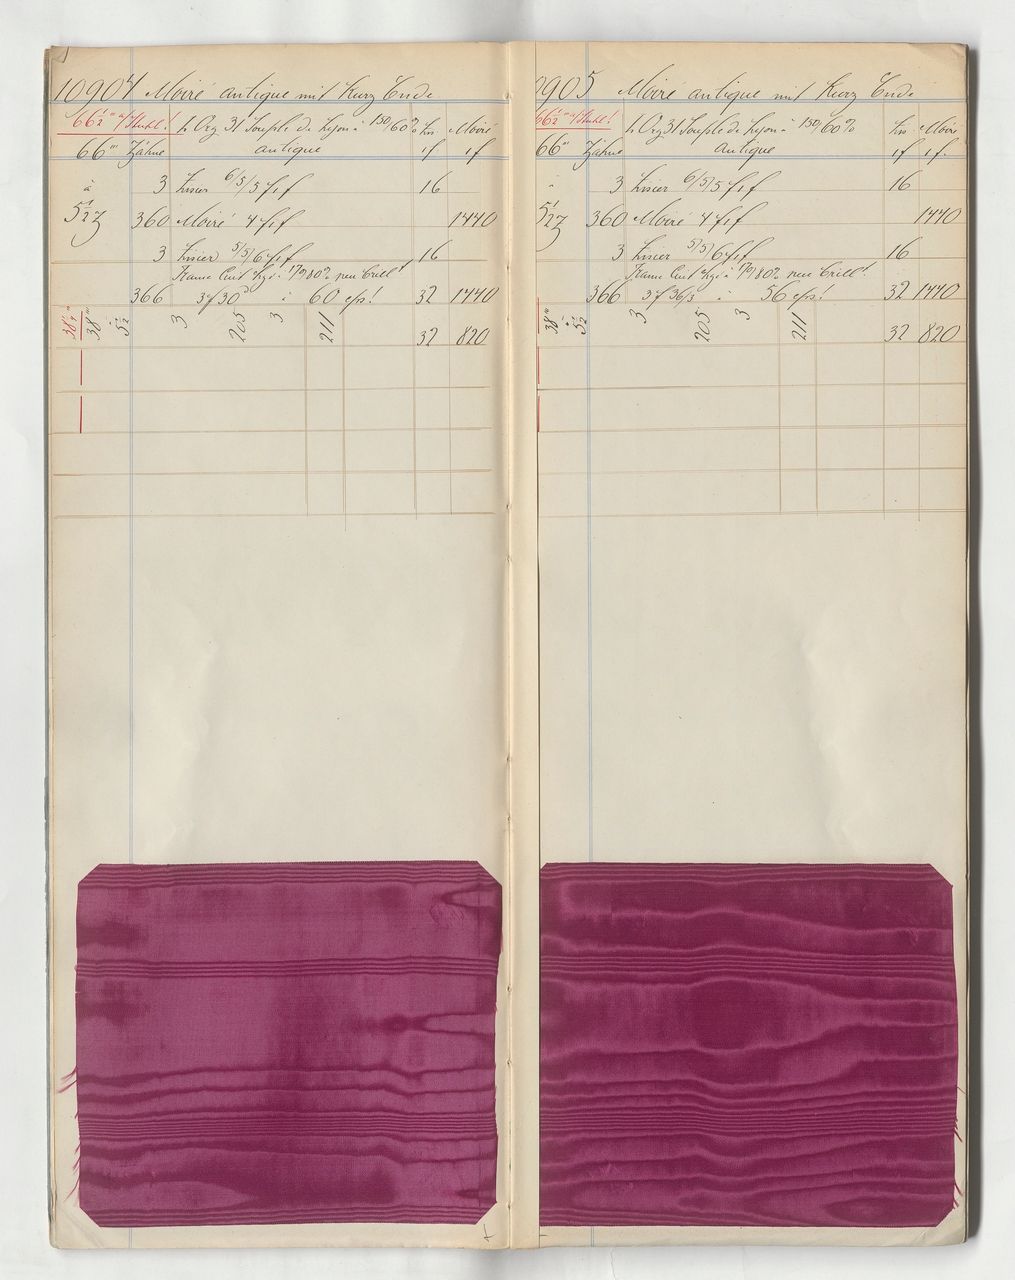 10904 Moiré antique mit Kurz Ende
66½''' a/Stuhl! h Org 31 Souple de Lyon à 150/60% Lis Moiré
66''' Zähne antique 1f 1f
à 3 Lisier 6/5/5 f 1 f 16
5½ z 360 Moiré 4 f 1 f 1440
3 Lisier 5/5/6 f 1 f 16
Trame Cuit à 179/80% neu Crill!
366 3 f 30 à 60 cps! 32 1440
38½''' 38''' à 5½ 3 205 3 211 32 820
0905 Moiré antique mit Kurz Ende
66½''' a/Stuhl! h Org 31 Souple de Lyon à 150/60% Lis Moiré
66''' Zähne antique 1f 1f
à 3 Lisier 6/5/5 f 1 f 16
5½ z 360 Moiré 4 f 1 f 1440
3 Lisier 5/5/6 f 1 f 16
Trame Cuit à 179/80% neu Crill!
366 3 f 36/3 à 56 cps! 32 1440
38''' à 5½ 3 205 3 211 32 820